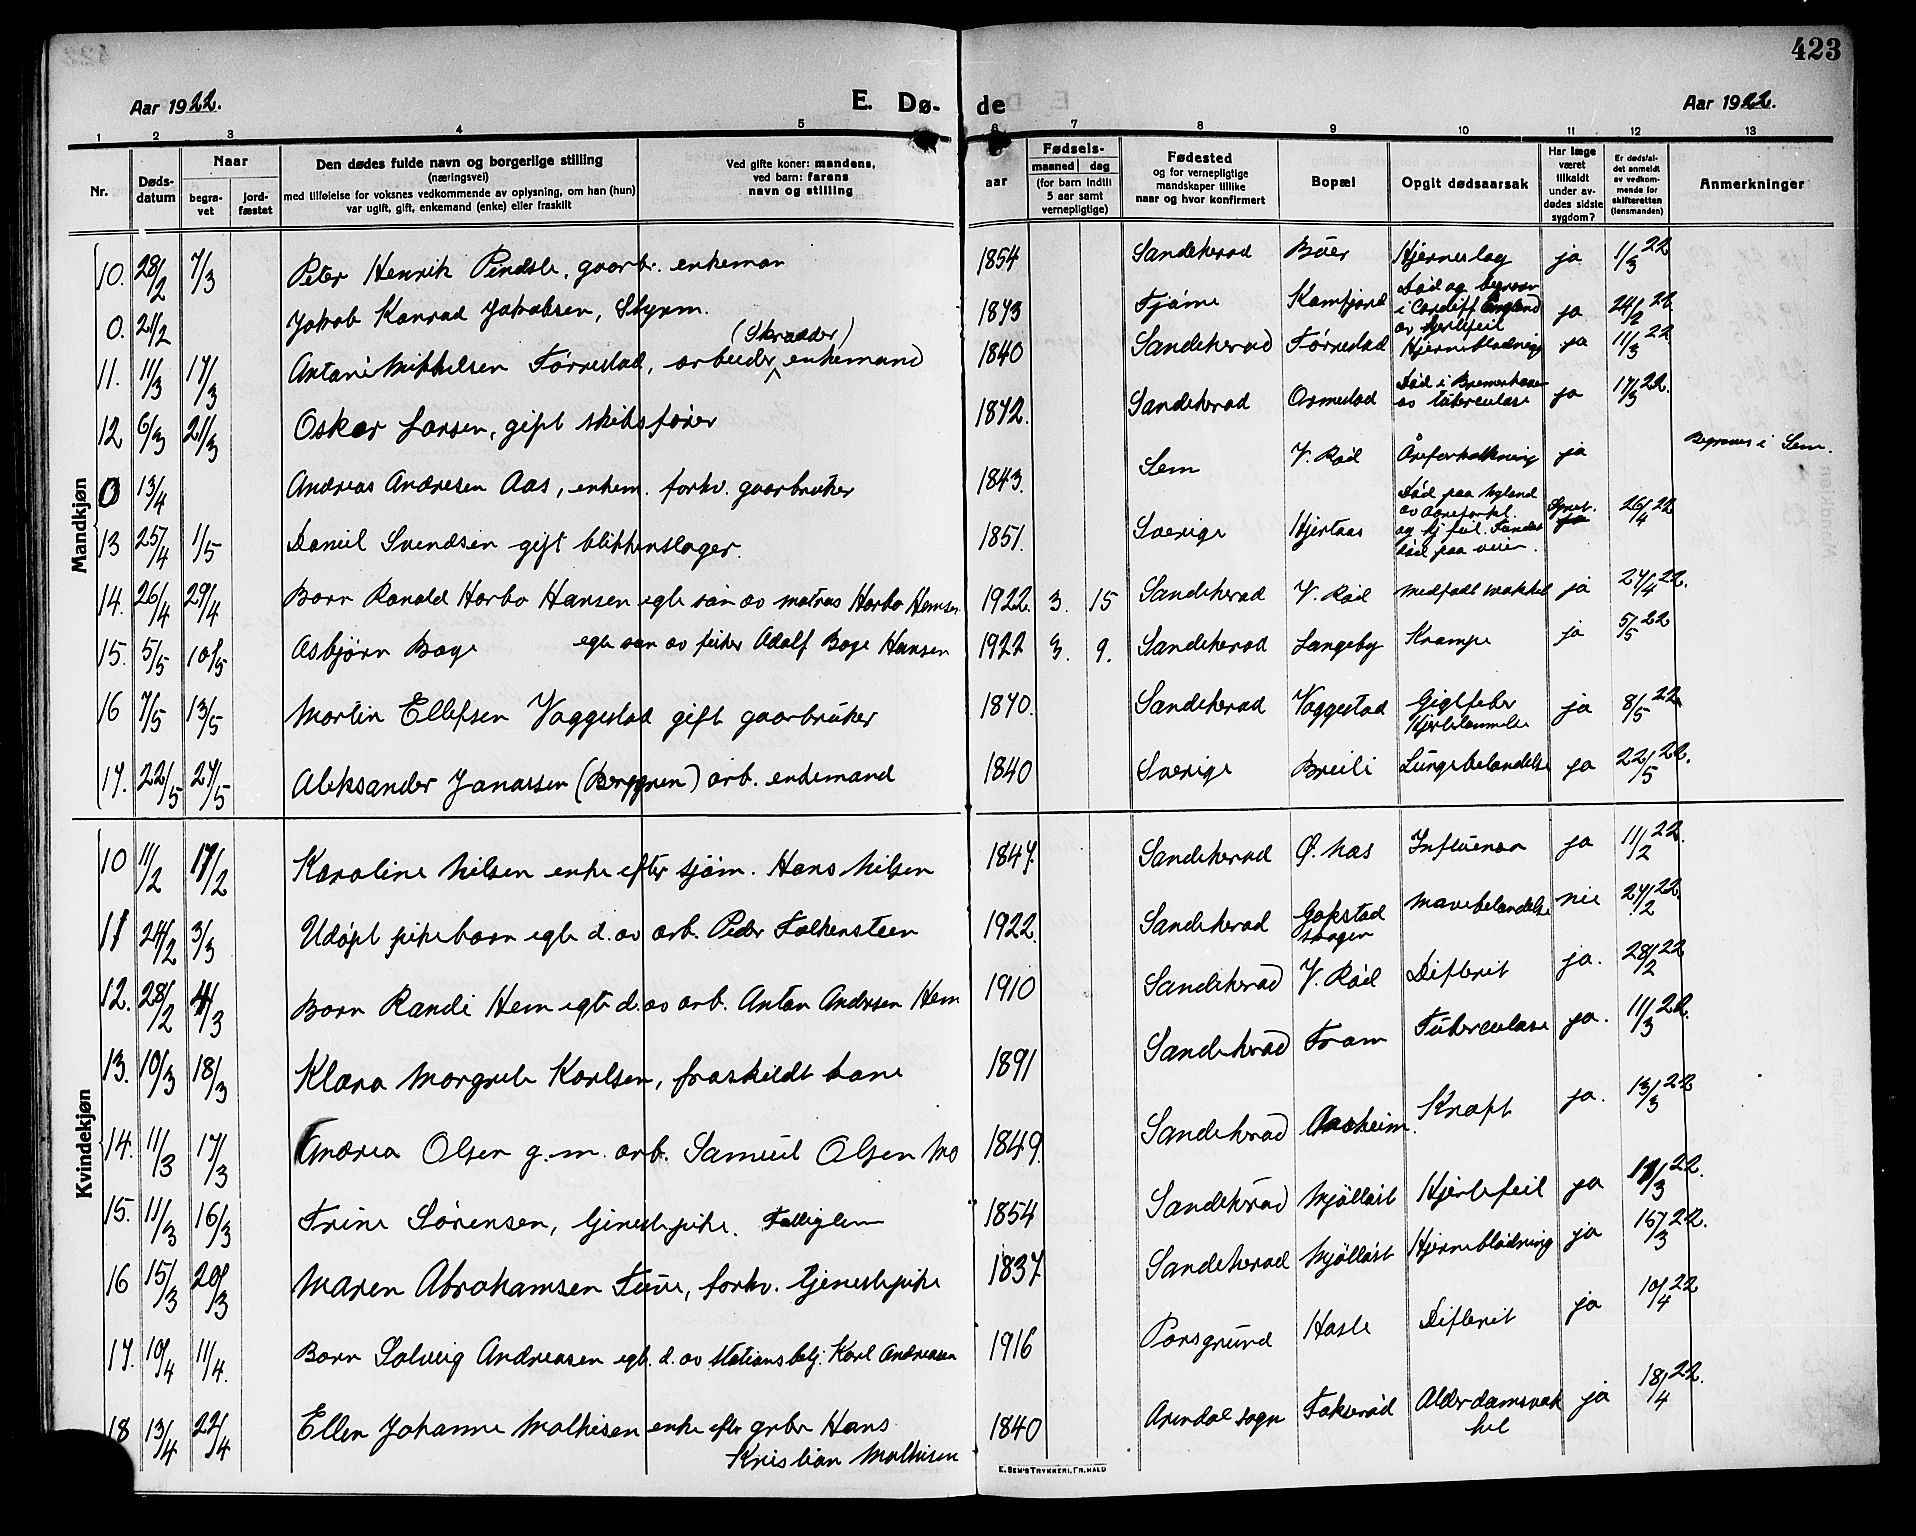 423
Aar 1922. E. Dø- de Aar 1922.
1 2 3 4 5 6 7 8 9 10 11 12 13
Nr. Døds-datum Naar begra-vet jord-fæstet Den dødes fulde navn og borgerlige stilling (næringsvei) med tilføielse for voksnes vedkommende av oplysning, om han (hun) var ugift, gift, enkemand (enke) eller fraskilt Ved gifte koner: mandens, ved barn: farens navn og stilling Fødsels- aar maaned dag (for barn indtil 5 aar samt vernepligtige) Fødested og for vernepligtige mandskaper tillike naar og hvor konfirmert Bopæl Opgit dødsaarsak Har læge været tilkaldt under av-dødes sidste sygdom? Er dødsfal-det anmeldt av vedkom-mende for skifteretten (lensmanden) Anmerkninger
Mandkjøn
10. 28/2 7/3 Peter Henrik Pindsle, gaarbr. enkeman 1854 Sandeherad Bøer Hjerneslag ja 1/3 22
0. 21/2 Jakob Konrad Jakobsen, Styrm. 1873 Tjøme Kamfjord Død og begravn i Cardiff England av hjertefeil ja 24/2 22.
11. 11/3 17/3 Antoni Mikkelsen Førrestad, arbeider (Skrædder) enkemand 1840 Sandeherad Førrestad Hjerneblødning ja 11/3 22
12 6/3 21/3 Oskar Larsen, gift skibsfører 1872. Sandeherad Ormestad Død i Bremerhaven av tuberculose ja 17/3 22.
0 13/4 Andreas Andresen Aas, enkem. forhv. gaarbruker 1843. Sem V. Rød Åreforkalkning ja Begraves i Sem.
13 25/4 1/5 Daniel Svendsen gift blikkenslager. 1851. Sverige Hjertaas Død paa Nyland av aareforkl. og hj feil. Fundet død paa veien. Synet. ja 26/4 22
14. 26/4 29/4 Barn Ronald Harbo Hansen egte søn av matros Harbo Hansen 1922. 3. 15 Sandeherad V. Rød medfødt svakhet ja 27/4 22.
15. 5/5 10/5 Asbjørn Boge egte søn av fisker Adolf Boge Hansen 1922 3. 9. Sandeherad Langeby Krampe ja 5/5 22
16 7/5 13/5 Martin Ellefsen Vaggestad gift gaarbruker 1870. Sandeherad Vaggestad Gigtfeber Hjertelammelse ja 8/5 22
17. 22/5 27/5 Aleksander Jonassen (Berggren) arb. enkemand 1840 Sverige Breili Lungebetændelse ja 22/5 22.
Kvindekjøn
10 11/2 17/2 Karoline Nilsen enke efter sjøm. Hans Nilsen 1847. Sandeherad Ø. Nas Influensa ja 11/2 22.
11 24/2 3/3 Udøpt pikebarn egte d. av arb. Peder Falkensteen 1922. Sandeherad Gokstad skogen Mavebetændelse nei 27/2 22
12. 28/2 4/3 Barn Randi Hem egte d. av arb. Anton Andersen Hem 1910 Sandeherad V. Rød Difterit ja. 28/2 22
13. 10/3 18/3 Klara Margrete Karlsen, fraskildt kone 1891 Sandeherad Fram Tuberculose ja. 11/3 22.
14. 11/3 17/3 Andrea Olsen g. m. arb. Samuel Olsen Mo 1849. Sandeherad Aasheim. Kræft ja. 13/3 22
15. 11/3 16/3 Trine Sørensen, tjenestepike. Fattiglem 1854 Sandeherad Mjølløst Hjertefeil ja 11/3 22.
16 15/3 20/3 Maren Abrahamsen Tuve, forhv. tjenestepike 1837. Sandeherad Mjølløst Hjerneblødning ja 15/3 22.
17. 10/4 11/4. Barn Solveig Andreasen egte d. av stationsbetj. Karl Andreasen 1916 Porsgrund Hasle Difterit ja 10/4 22
18 13/4 22/4 Ellen Johanne Mathisen enke efter grbr Hans 1840 Arendal sogn Fokserød Alderdomsvak ja 18/4 22.
Kristian Mathisen het
E. SEM'S TRYKKERI, FR.HALD